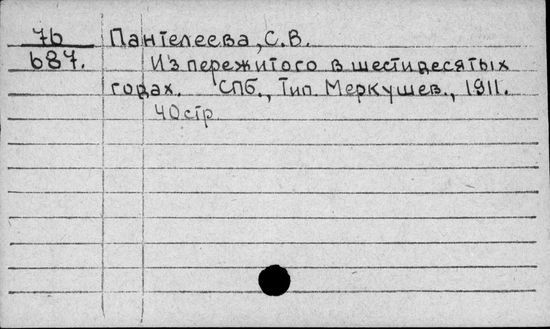 76 Пантелеева, С.В.
687. Из пережитого в шестидесятых
годах. СПб., Тип. Меркушев., 1911.
40 стр